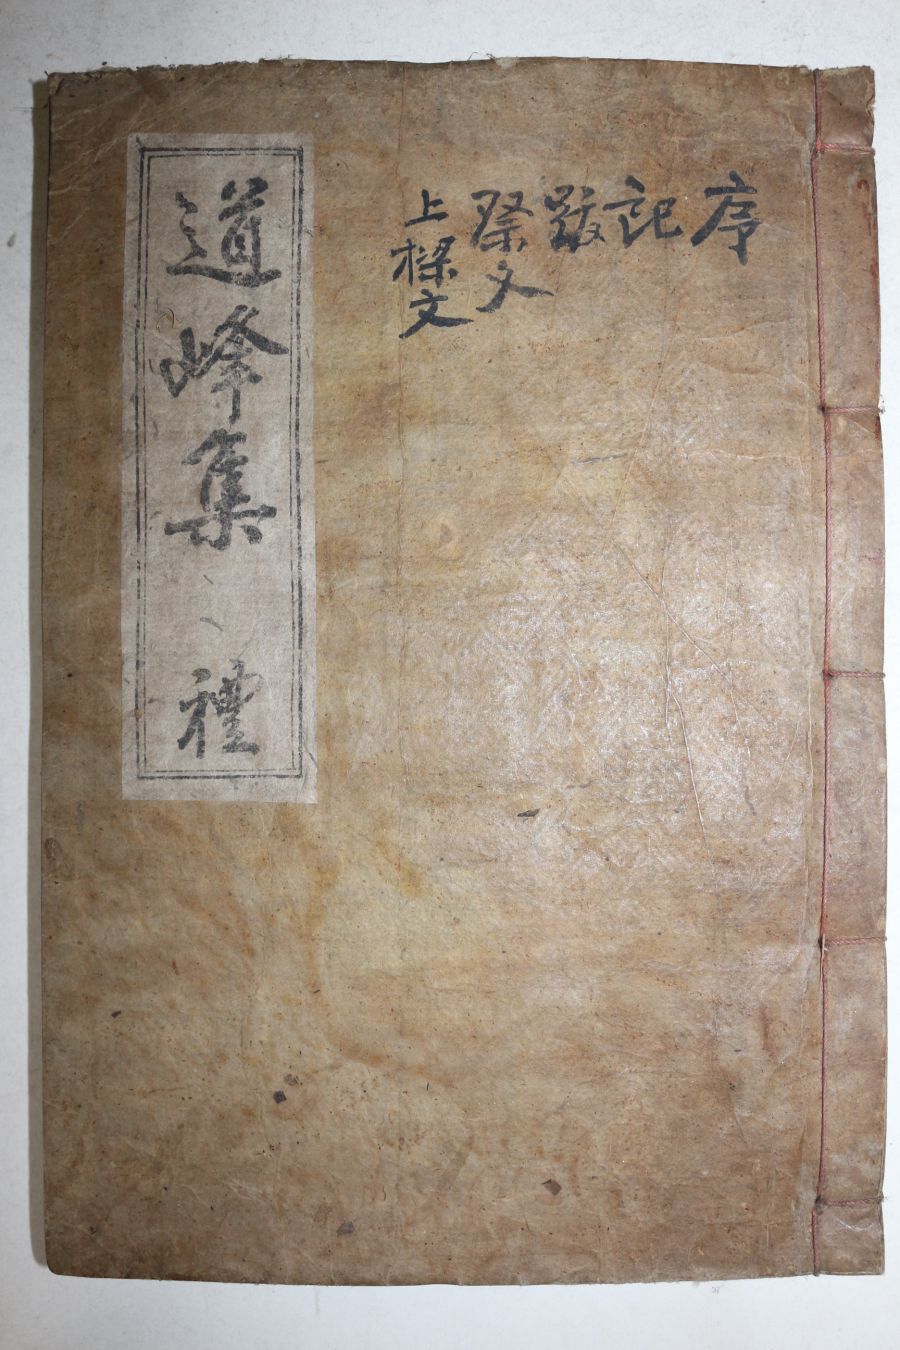 序
記
跋
祭文
上樑文
道峰集
禮